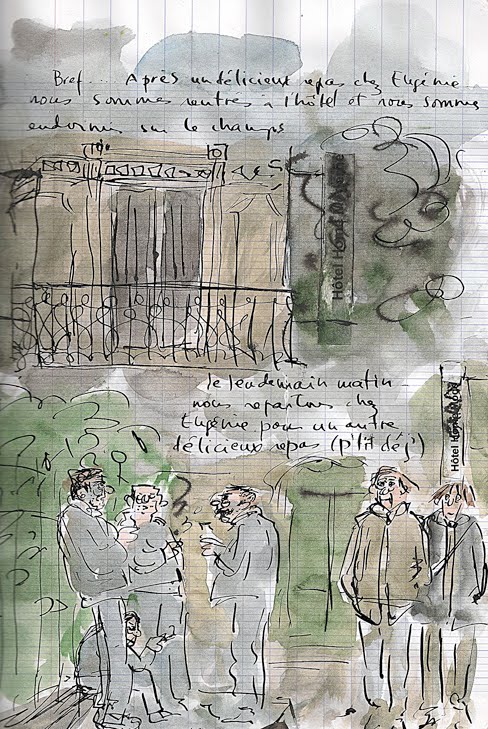 Bref... Après un délicieux repas chez Eugénie
nous sommes rentrés à l'hôtel et nous sommes
endormis sur le champs
Hôtel Honoré
le lendemain matin
nous repartons chez
Eugénie pour un autre
délicieux repas (p'tit déj')
Hôtel